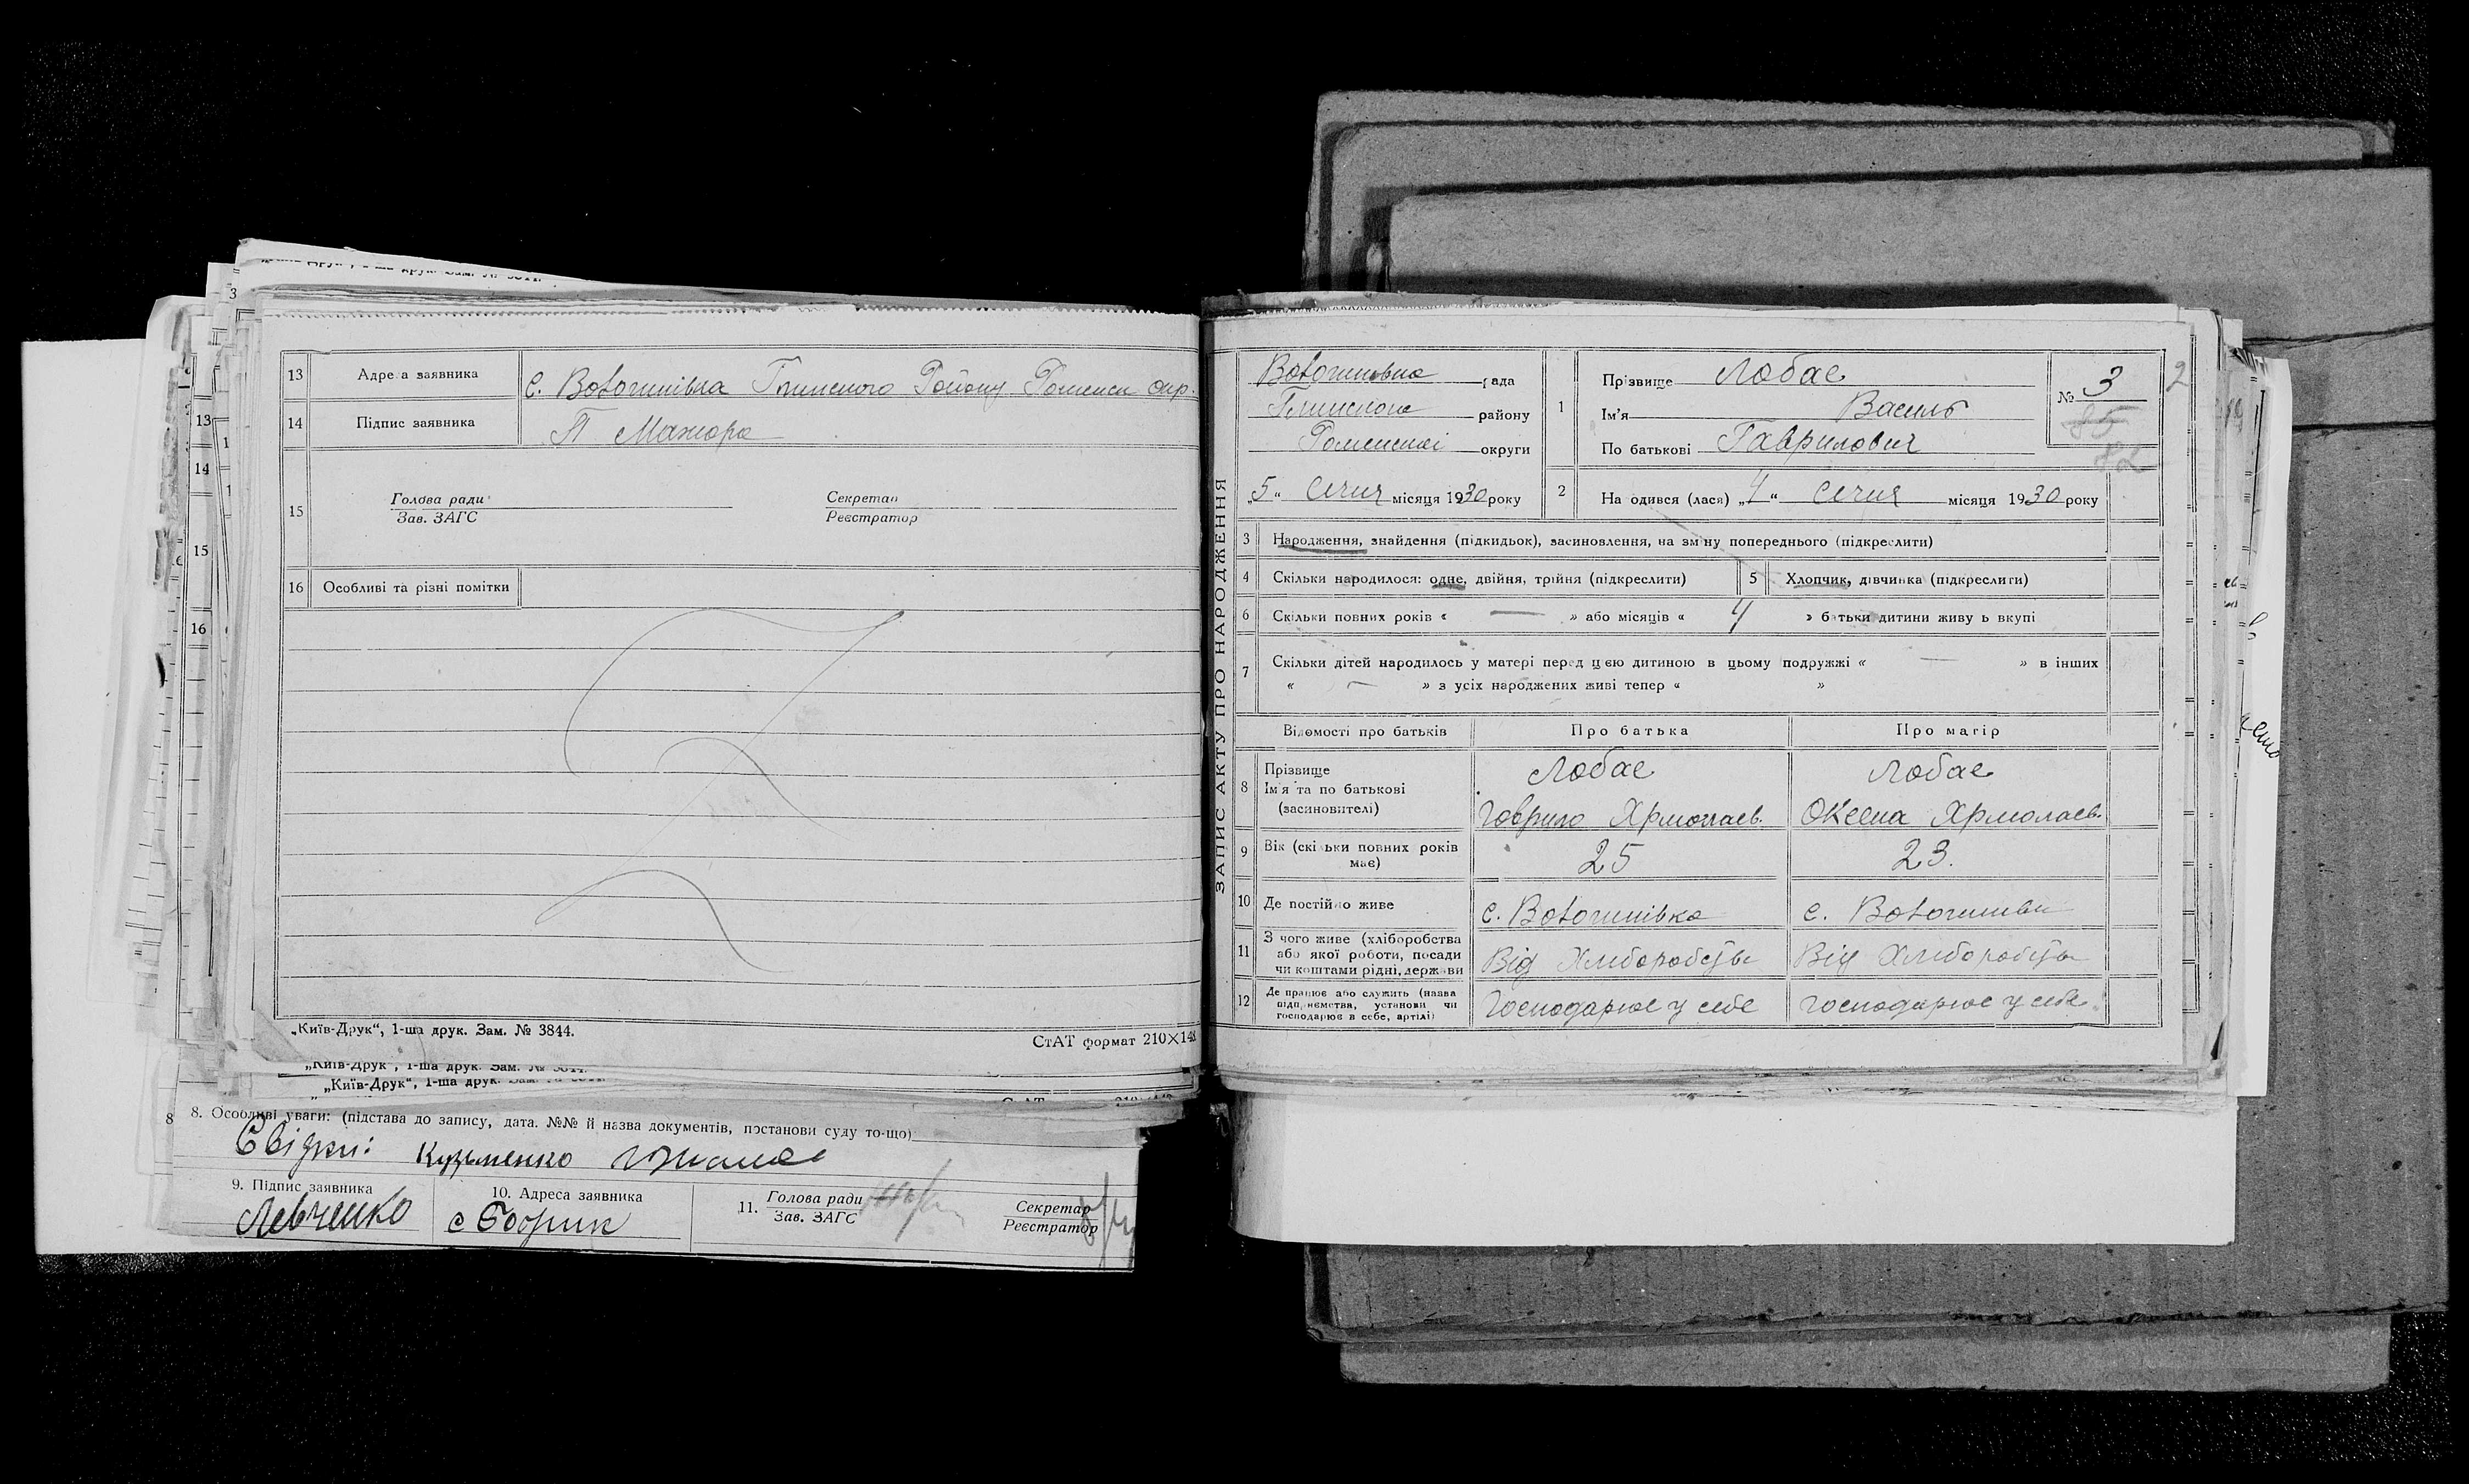 13 Адреса заявника с. Вовчинівка Глинського Району Роменськ окр.
14 Підпис заявника П Мажора
15 Голова ради Секретар
Зав. ЗАГС Реєстратор
16 Особливі та різні помітки
„Київ-Друк“, 1-ша друк. Зам. № 3844.
СтАТ формат 210×148
„Київ-Друк“, 1-ша друк. Зам. № 3844.
„Київ-Друк“, 1-ша друк.
8. Особливі уваги: (підстава до запису, дата. №№ й назва документів, постанови суду то-що)
Свідки: Кузьменко
9. Підпис заявника 10. Адреса заявника 11. Голова ради Секретар
Зав. ЗАГС Реєстратор
Левченко с
ЗАПИС АКТУ ПРО НАРОДЖЕННЯ
рада
Глинського району
Роменської округи
„5“ Січня місяця 1930 року
1 Прізвище Лобас
Ім'я Василь
По батькові Гаврилович
№ 3
85
82
2
2 Народився (лася) „4“ Січня місяця 1930 року
3 Народження, знайдення (підкидьок), засиновлення, на зміну попереднього (підкреслити)
4 Скільки народилося: одне, двійня, трійня (підкреслити) 5 Хлопчик, дівчинка (підкреслити)
6 Скільки повних років « — » або місяців « 4 » батьки дитини живуть вкупі
7 Скільки дітей народилось у матері перед цею дитиною в цьому подружжі « — » в інших
« — » з усіх народжених живі тепер « »
Відомості про батьків Про батька Про матір
8 Прізвище
Ім'я та по батькові
(засиновителі)
Лобас Лобас
Гаврило Ярмолаєв. Оксена Ярмолаєв.
9 Вік (скільки повних років
має) 25 23.
10 Де постійно живе с. Вовчинівка с.
11 З чого живе (хліборобства
або якої роботи, посади
чи коштами рідні, держави
Від Хліборобства Від Хліборобства
12 Де працює або служить (назва
підприємства, установи чи
господарює в себе, артілі)
Господарює у себе господарює у себе